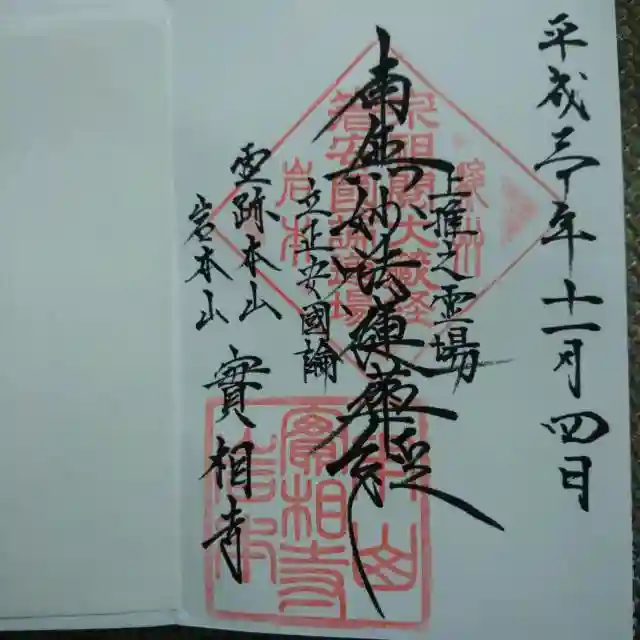 平成三十年十一月四日
上進之霊場
南無妙法蓮華経
立正安國論
霊跡本山
岩本山
實相寺
岩本
實相寺